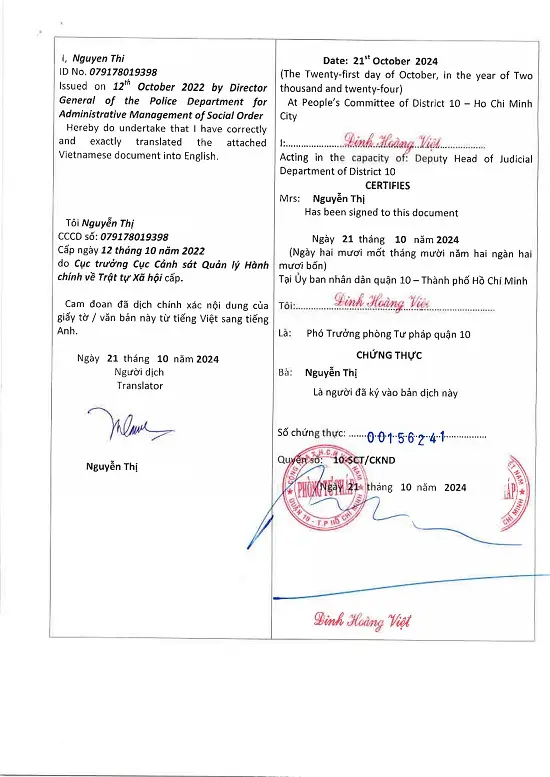 I, Nguyen Thi
ID No. 079178019398
Issued on 12th October 2022 by Director
General of the Police Department for
Administrative Management of Social Order
Hereby do undertake that I have correctly
and exactly translated the attached
Vietnamese document into English.
Tôi Nguyễn Thị
CCCD số: 079178019398
Cấp ngày 12 tháng 10 năm 2022
do Cục trưởng Cục Cảnh sát Quản lý Hành
chính về Trật tự Xã hội cấp.
Cam đoan đã dịch chính xác nội dung của
giấy tờ / văn bản này từ tiếng Việt sang tiếng
Anh.
Ngày 21 tháng 10 năm 2024
Người dịch
Translator
Nguyễn Thị
Date: 21st October 2024
(The Twenty-first day of October, in the year of Two
thousand and twenty-four)
At People's Committee of District 10 – Ho Chi Minh
City
I:.......Đinh Hoàng Việt.......
Acting in the capacity of: Deputy Head of Judicial
Department of District 10
CERTIFIES
Mrs: Nguyễn Thị
Has been signed to this document
Ngày 21 tháng 10 năm 2024
(Ngày hai mươi mốt tháng mười năm hai ngàn hai
mươi bốn)
Tại Ủy ban nhân dân quận 10 – Thành phố Hồ Chí Minh
Tôi:.......Đinh Hoàng Việt.......
Là: Phó Trưởng phòng Tư pháp quận 10
CHỨNG THỰC
Bà: Nguyễn Thị
Là người đã ký vào bản dịch này
Số chứng thực: .......00156241.......
Quyển số: 10-SCT/CKND
Ngày 21 tháng 10 năm 2024
PHÒNG TƯ PHÁP
QUẬN 10 - T.P HỒ CHÍ MINH
Đinh Hoàng Việt